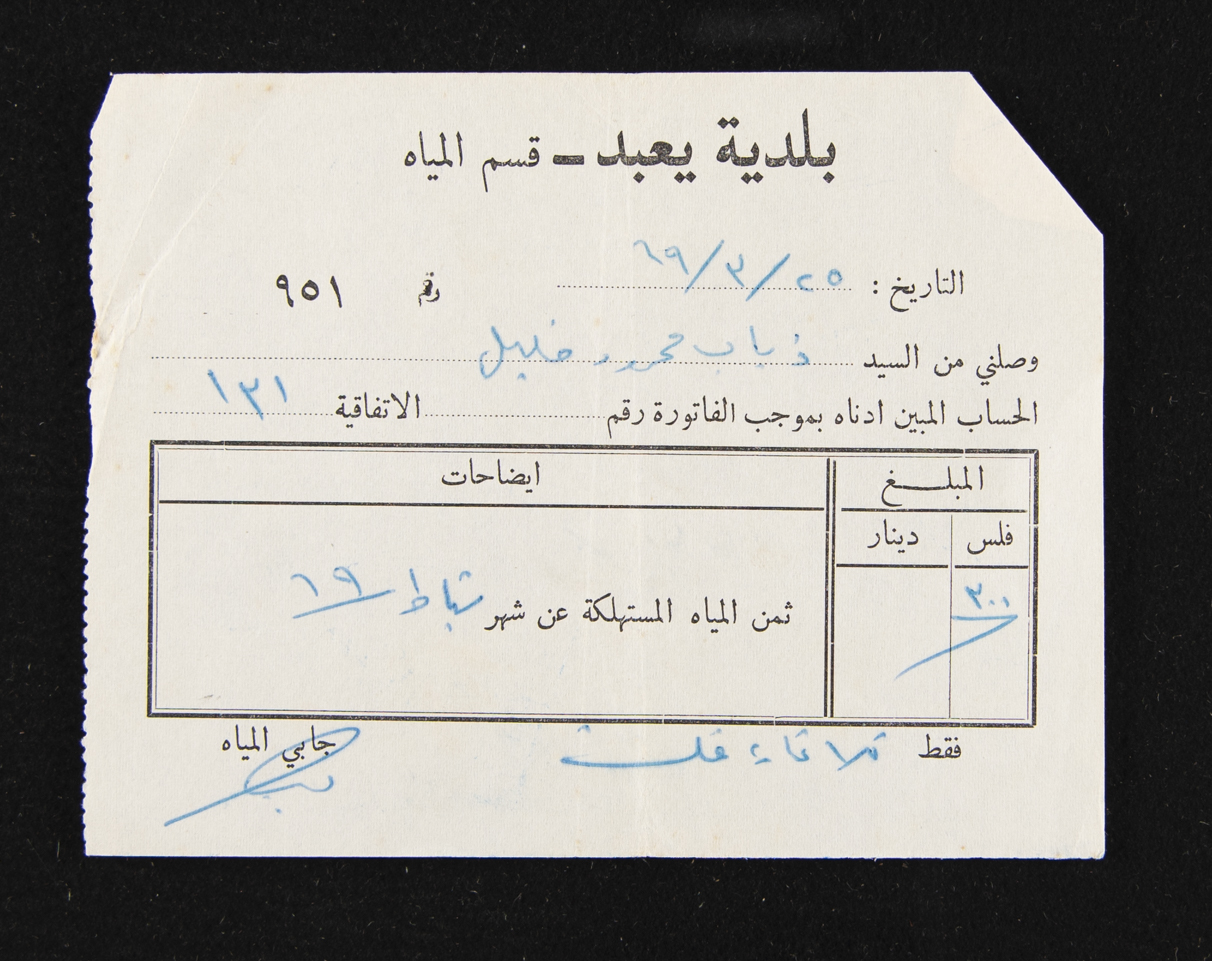 بلدية يعبد ـ قسم المياه
التاريخ : ٢٥/٣/٦٩
رقم ٩٥١
وصلني من السيد ذياب محمود خليل
الحساب المبين ادناه بموجب الفاتورة رقم الاتفاقية ١٣١
المبلــغ ايضاحات
فلس دينار
٣٠٠ ثمن المياه المستهلكة عن شهر شباط ٦٩
فقط ثلاثماية فلس جابي المياه